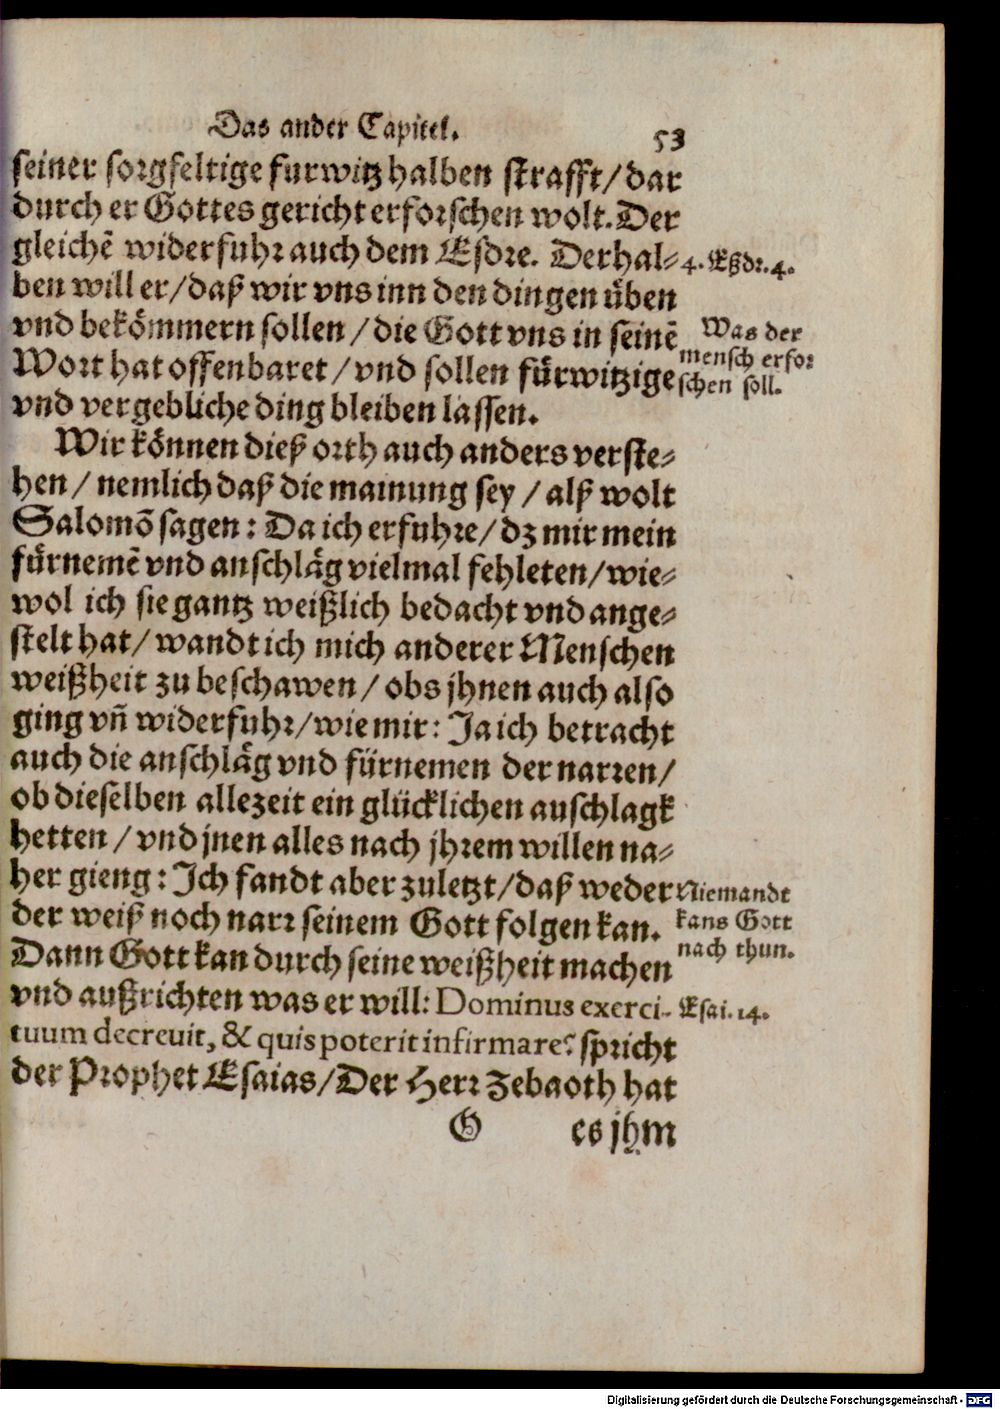 Das ander Capitel.
53
seiner sorgfeltige furwitz halben strafft/dar
durch er Gottes gericht erforschen wolt. Der
gleichē widerfuhr auch dem Esdre. Derhal-
4. Eßdr. 4.
ben will er/daß wir vns inn den dingen uͤben
vnd bekoͤmmern sollen/die Gott vns in seinē
Wort hat offenbaret/vnd sollen fuͤrwitzige
vnd vergebliche ding bleiben lassen.
Was der
mensch erfor
schen soll.
Wir koͤnnen dieß orth auch anders verste-
hen/nemlich daß die mainung sey/alß wolt
Salomō sagen: Da ich erfuhre/dz mir mein
fuͤrnemē vnd anschlaͤg vielmal fehleten/wie-
wol ich sie gantz weißlich bedacht vnd ange-
stelt hat/wandt ich mich anderer Menschen
weißheit zu beschawen/obs jhnen auch also
ging vn̄ widerfuhr/wie mir: Ja ich betracht
auch die anschlaͤg vnd fuͤrnemen der narren/
ob dieselben allezeit ein gluͤcklichen auschlagk
hetten/vnd jnen alles nach jhrem willen na-
her gieng: Ich fandt aber zuletzt/daß weder
der weiß noch narr seinem Gott folgen kan.
Niemandt
kans Gott
nach thun.
Dann Gott kan durch seine weißheit machen
vnd außrichten was er will: Dominus exerci-
Esai. 14.
tuum decreuit, & quis poterit infirmare? spricht
der Prophet Esaias/Der Herr Zebaoth hat
G
es jhm
Digitalisierung gefördert durch die Deutsche Forschungsgemeinschaft - DFG